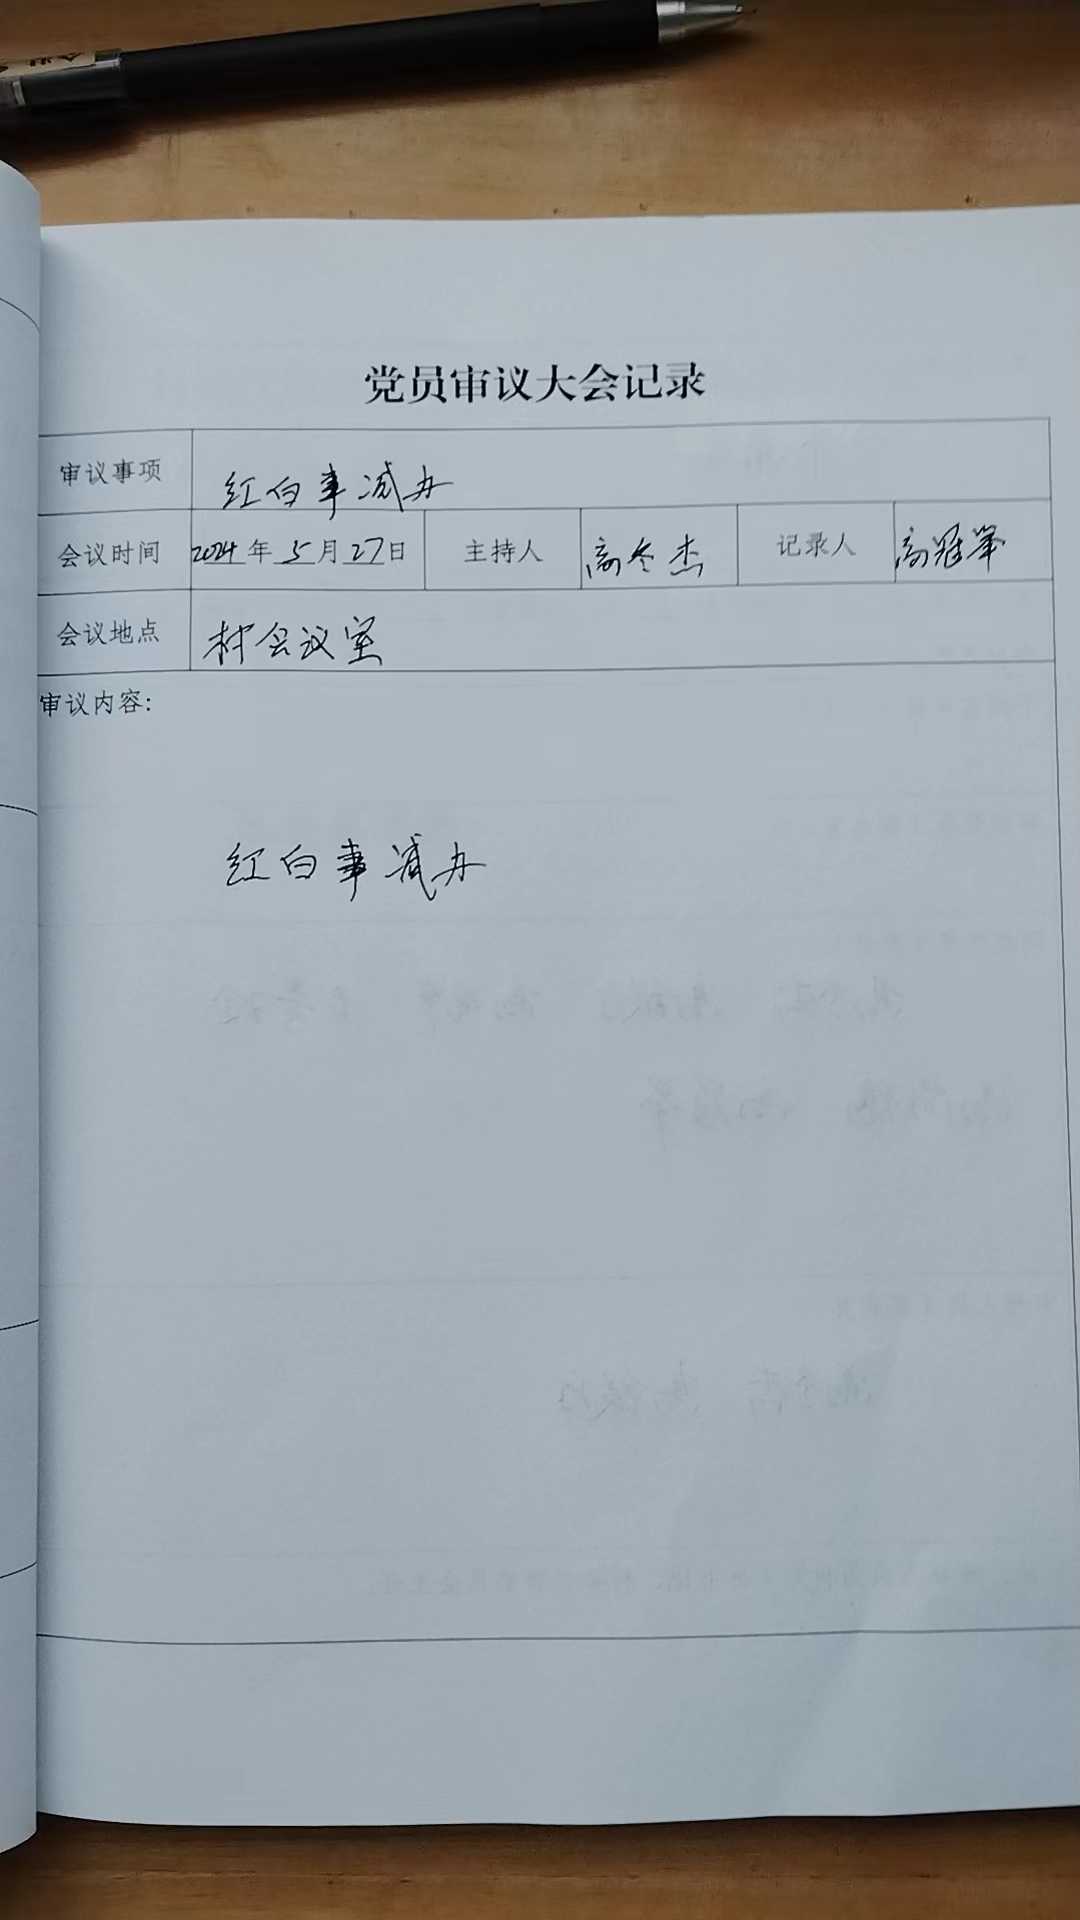 党员审议大会记录
审议事项 红白事减办
会议时间 2024年5月27日 主持人 高冬杰 记录人 高冠举
会议地点 村会议室
审议内容:
红白事减办